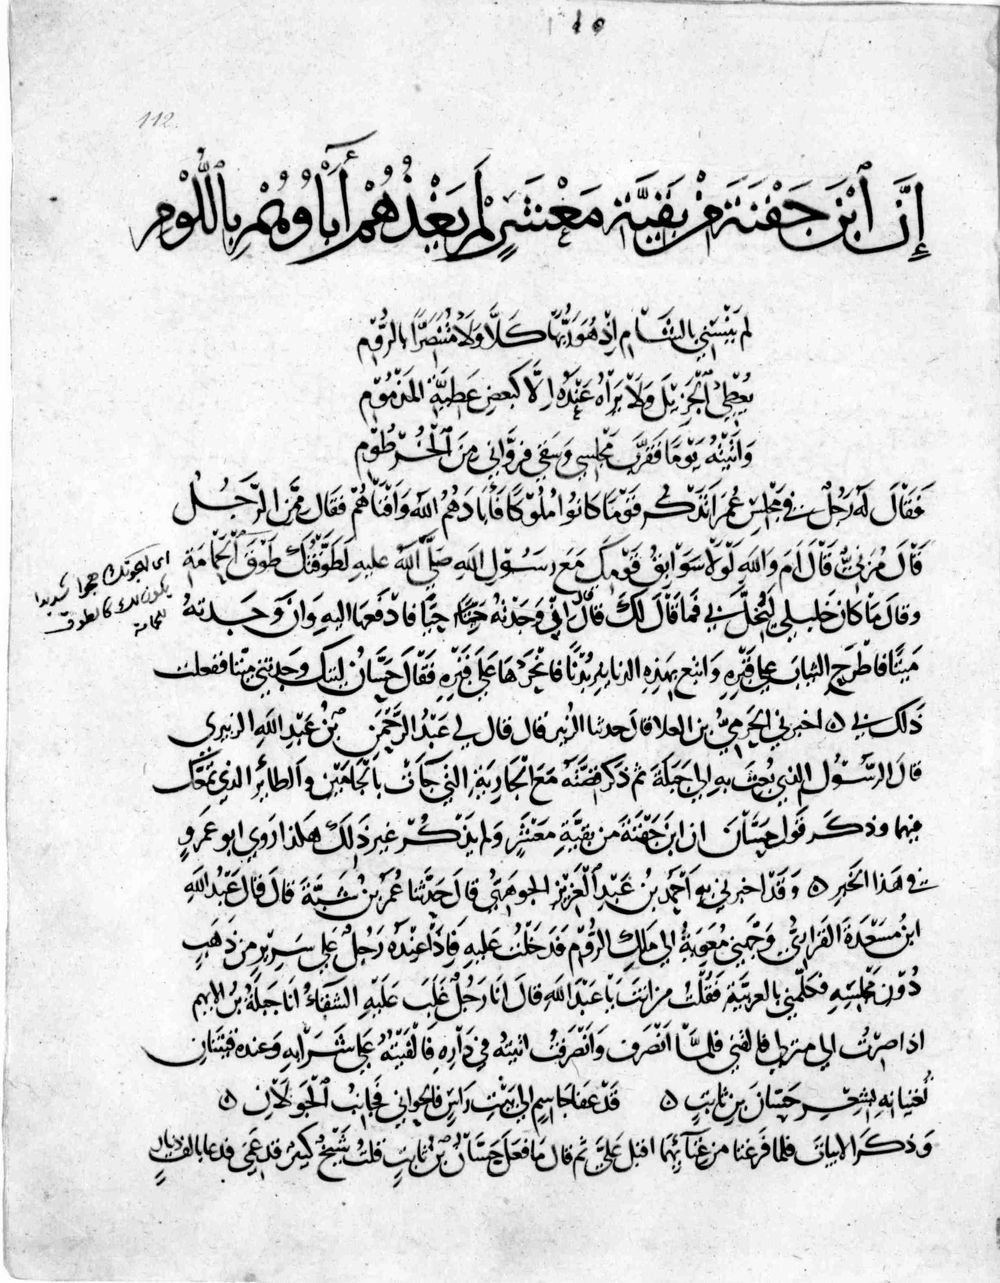 112
إِنَّ ٱبْنَ جَفْنَةَ مِنْ بَقِيَّةِ مَعْشَرٍ لَمْ يَغْذُهُمْ أَبَاؤُهُمْ بِاللُّوْمِ
لم يَنْسَنِي بالشَّامِ إِذْ هُوَ رَبُّهَا كَلَّا وَلَا مُتَنَصِّرًا بالرُّوْمِ
يُعْطِي ٱلْجَزِيْلَ وَلَا يَرَاهُ عِنْدَهُ إِلَّا كَبَعْضِ عَطِيَّةِ المَذْمُوْمِ
وَأَتَيْتُهُ يَوْمًا فَقَرَّبَ مَجْلِسِي وَسَقَى فَرَوَّانِي مِنَ ٱلْخُرْطُوْمِ
فَقَالَ لَهُ رَجُلٌ في مَجْلِسِ عُمَرَ أَتَذْكُر قَوْمًا كَانُوا مُلُوْكًا فَأَبَادَهُمُ اللهُ وَأَفْنَاهُمْ فقَال مِمَّن الرَّجُلُ
قَالَ مُزَنِيٌّ قَالَ أَمَ وَاللهِ لَوْلَا سَوَابِقُ قَوْمِكَ مَعَ رَسُوْلِ اللهِ صَلَّى اللهُ عليهِ لَطَوَّقْتُكَ طَوْقَ ٱلْحَمَامَةِ
اى لهجوتك هجوا شديدا
يكون لك كالطوق
للحمامة
وقال مَا كان خليلي لِيُخِلَّ بي فما قَالَ لكَ قال إِنْ وَجَدْتَهُ حَيًّا فادفَعها اليهِ وَانْ وَجَدْتَهُ
مَيِّتًا فاطْرَح الثياب على قَبْرِهِ وَابتع بهذِهِ الدنانير بُدْنًا فانْحَرْهَا عَلَى قَبْرِهِ فَقَالَ حَسَّانُ لَيْتَكَ وجدتني ميتا ففعلت
ذَلك بي ه اخبرني الحَرَمِيُّ بن العلا قال حدثنا الزبير قال قال لي عَبْدُ الرَّحْمٰنِ بْنُ عَبْدِ اللهِ الزبيري
قالَ الرَّسُوْلُ الذي بُعِثَ بهِ الى جَبَلَةَ ثم ذكر قصَّتَهُ مَعَ الجَارِيَةِ التي جَآءَتْ بالْجَامَيْنِ والطائِرِ الذي تمعَّكَ
فيهما وذكر قول حَسَّانَ ان ابن جَفْنَةَ من بقيَّةِ مَعْشَرٍ وَلم يَذْكُرْ غير ذَلكَ هكذا رَوى ابو عمرٍو
في هذا الخبرِ ه وَقَدْ اخبرني بهِ أَحْمَدُ بنُ عَبْدِ ٱلْعَزِيْزِ الجوهَرِيُّ قالَ حَدَّثنا عُمَرُ بْنُ شَبَّةَ قالَ قالَ عَبْدُ اللهِ
ابنُ مَسْعَدَةَ الفَزَارِيُّ وَجَّهَنِي مُعٰوِيَةُ الى مَلِكِ الرُّوْمِ فَدَخَلْتُ عليهِ فَإِذَا عِنْدَهُ رَجُلٌ على سَرِيْرٍ مِن ذهَبٍ
دُوْنَ مَجْلِسِهِ فكلَّمَنِي بالعربيَّةِ فَقُلْتُ مَن انتَ يَا عَبْدَ اللهِ قالَ انَا رَجُلٌ غَلَبَ عَلَيْهِ الشَّقَاءُ انَا جَبَلَةُ بْنُ الايهم
اذا صِرْتُ الى منزلي فالقني فلمَّا انْصَرَفَ وَانْصَرَفْتُ اتيتُهُ في دَارِهِ فَأَلْفَيْتُهُ عَلَى شَرَابِهِ وعنده قينتان
تُغنيانِهِ بشِعْرِ حَسَّانَ بن ثابتٍ ه قَدْ عَفَا جَاسِمٌ الى بَيْتِ رَاسٍ فالجوابي فجانبُ ٱلْجَوْلَانِ ه
وَذكرَ الابيات فلمَّا فَرَغَتَا مِن غِنَآئِهِمَا اقبل عَلَيَّ ثم قال مَا فعَلَ حَسَّانُ بْنُ ثَابِتٍ قلتُ شَيْخٌ كبيرٌ قد عَمِيَ فدعا بالف دينار